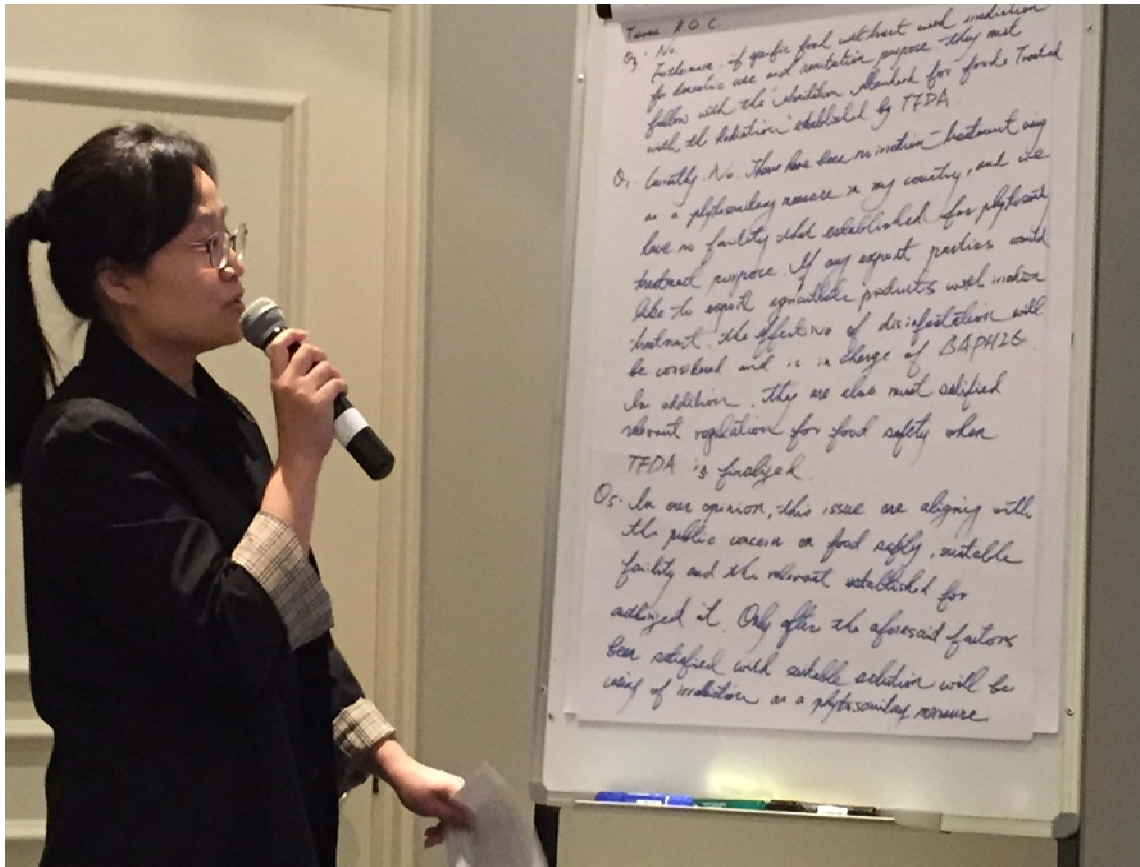 Taiwan R.O.C.
Q3. No.
Furthermore, if specific food without used irradiation
for domestic use and sanitation purpose they must
follow with the "sanitation standard for foods Treated
with the Radiation" established by TFDA
Q1. Currently, No. There have been no irradiation treatment using
as a phytosanitary measure in my country, and we
have no facility that established for phytosanitary
treatment purpose. If any export parties would
like to export agriculture products with irradiation
treatment, the effective of disinfestation will
be considered and is in charge of BAPHIQ.
In addition, they are also must satisfied
relevant regulation for food safety when
TFDA is finalized.
Q5. In our opinion, this issue are aligning with
the public concern on food safety, suitable
facility and the relevant established for
authorized it. Only after the aforesaid factors
been satisfied with suitable solution will be
using of irradiation as a phytosanitary measure